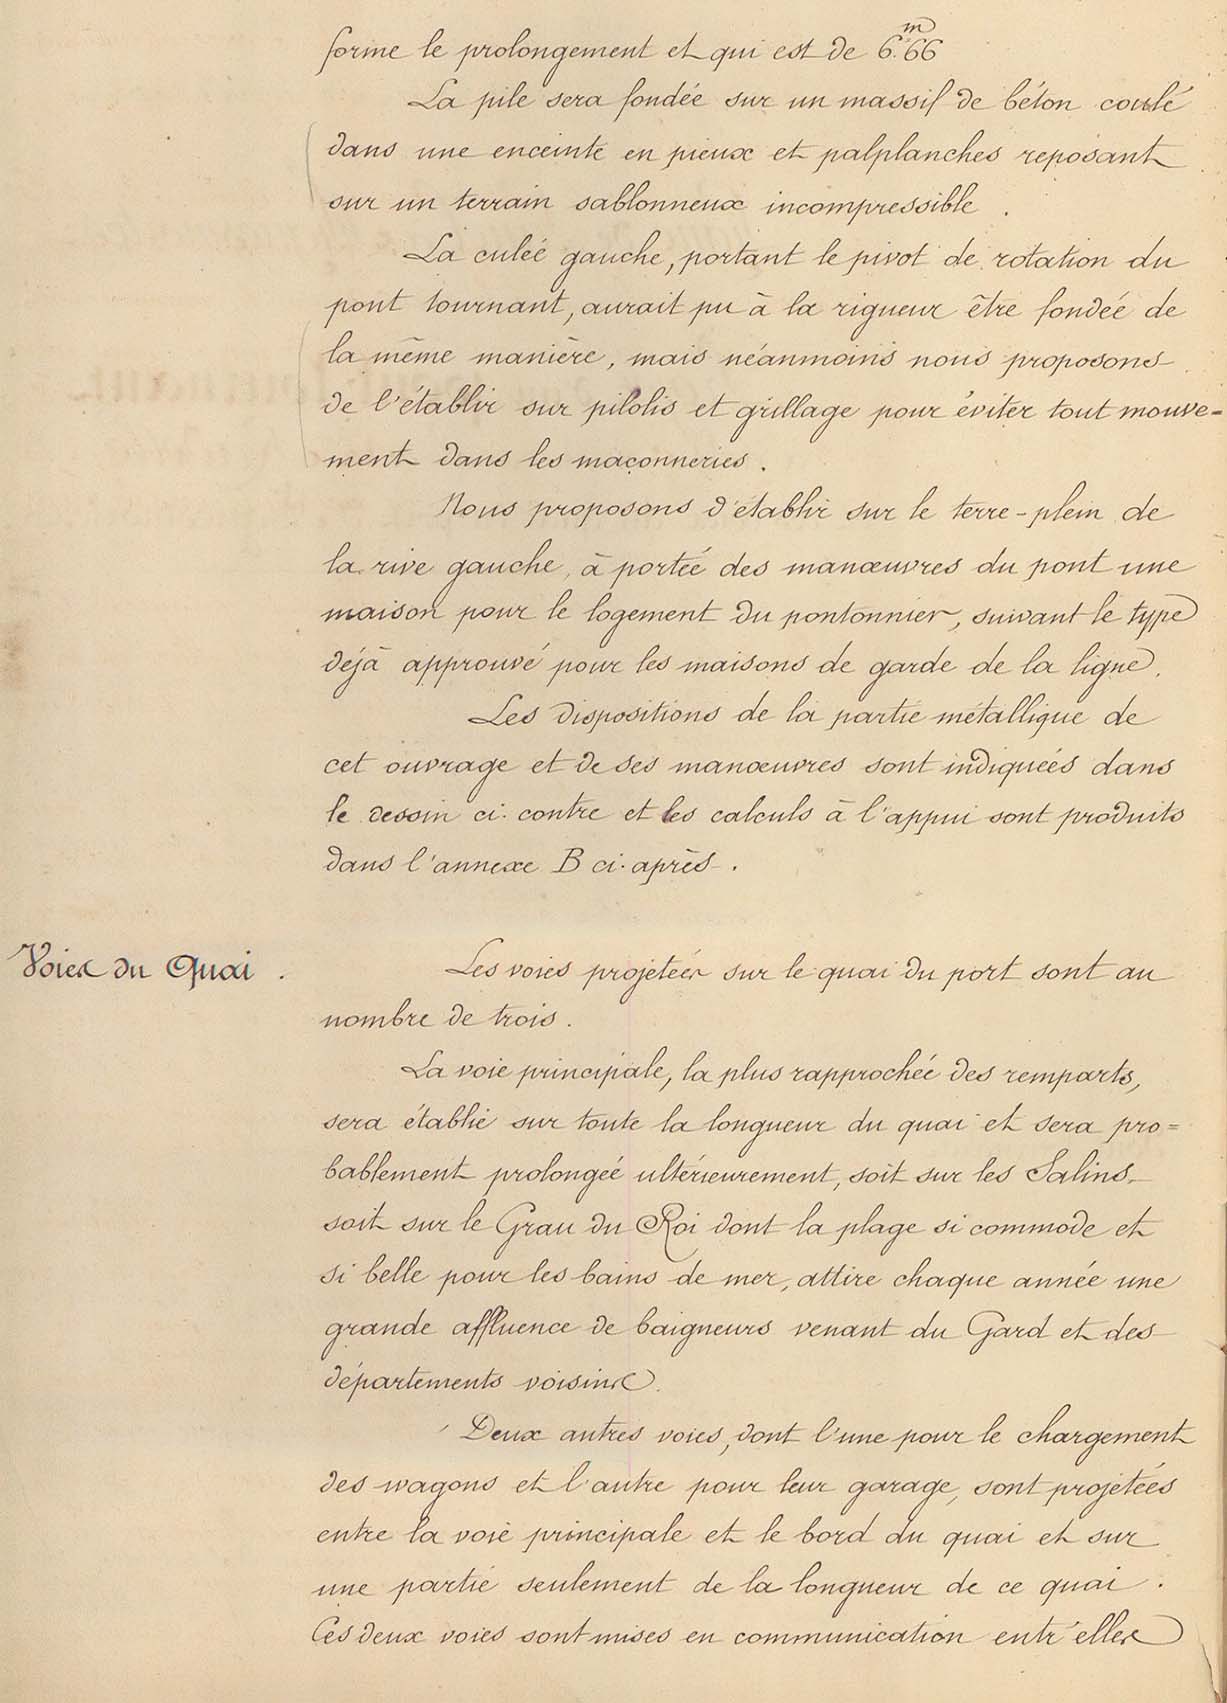 forme le prolongement et qui est de 6.m66
La pile sera fondée sur un massif de béton coulé
dans une enceinte en pieux et palplanches reposant
sur un terrain sablonneux incompressible.
La culée gauche, portant le pivot de rotation du
pont tournant, aurait pu à la rigueur être fondée de
la même manière, mais néanmoins nous proposons
de l'établir sur pilotis et grillage pour éviter tout mouve=
ment dans les maçonneries.
Nous proposons d'établir sur le terre-plein de
la rive gauche, à portée des manœuvres du pont une
maison pour le logement du pontonnier, suivant le type
déjà approuvé pour les maisons de garde de la ligne.
Les dispositions de la partie métallique de
cet ouvrage et de ses manœuvres sont indiquées dans
le dessin ci-contre et les calculs à l'appui sont produits
dans l'annexe B ci-après.
Voies du Quai.
Les voies projetées sur le quai du port sont au
nombre de trois.
La voie principale, la plus rapprochée des remparts,
sera établie sur toute la longueur du quai et sera pro=
bablement prolongée ultérieurement, soit sur les Salins,
soit sur le Grau du Roi dont la plage si commode et
si belle pour les bains de mer, attire chaque année une
grande affluence de baigneurs venant du Gard et des
départements voisins.
Deux autres voies, dont l'une pour le chargement
des wagons et l'autre pour leur garage, sont projetées
entre la voie principale et le bord du quai et sur
une partie seulement de la longueur de ce quai.
Ces deux voies sont mises en communication entr'elles